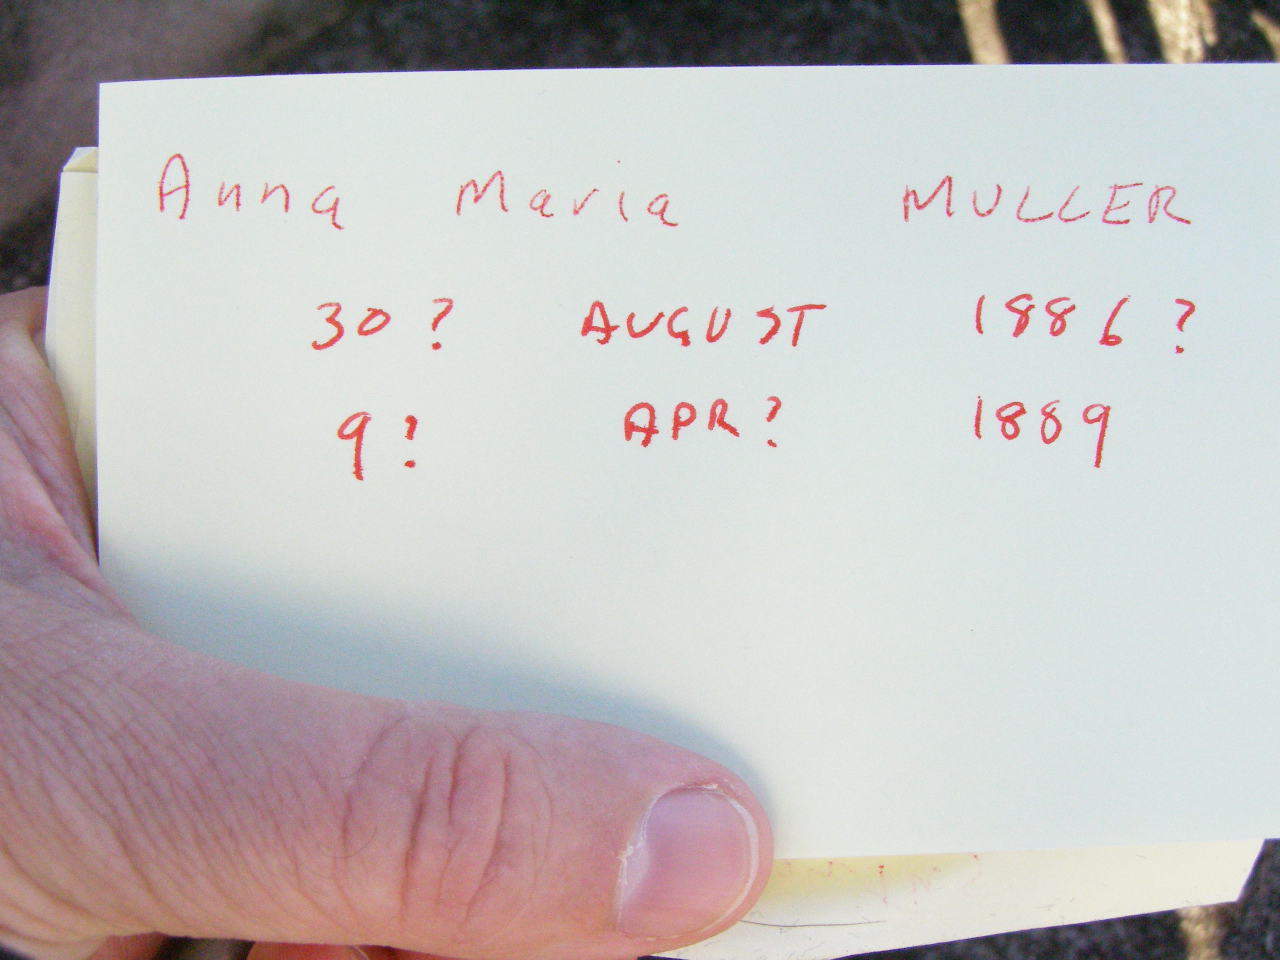 Anna Maria MULLER
30 ? AUGUST 1886 ?
9 ? APR ? 1889